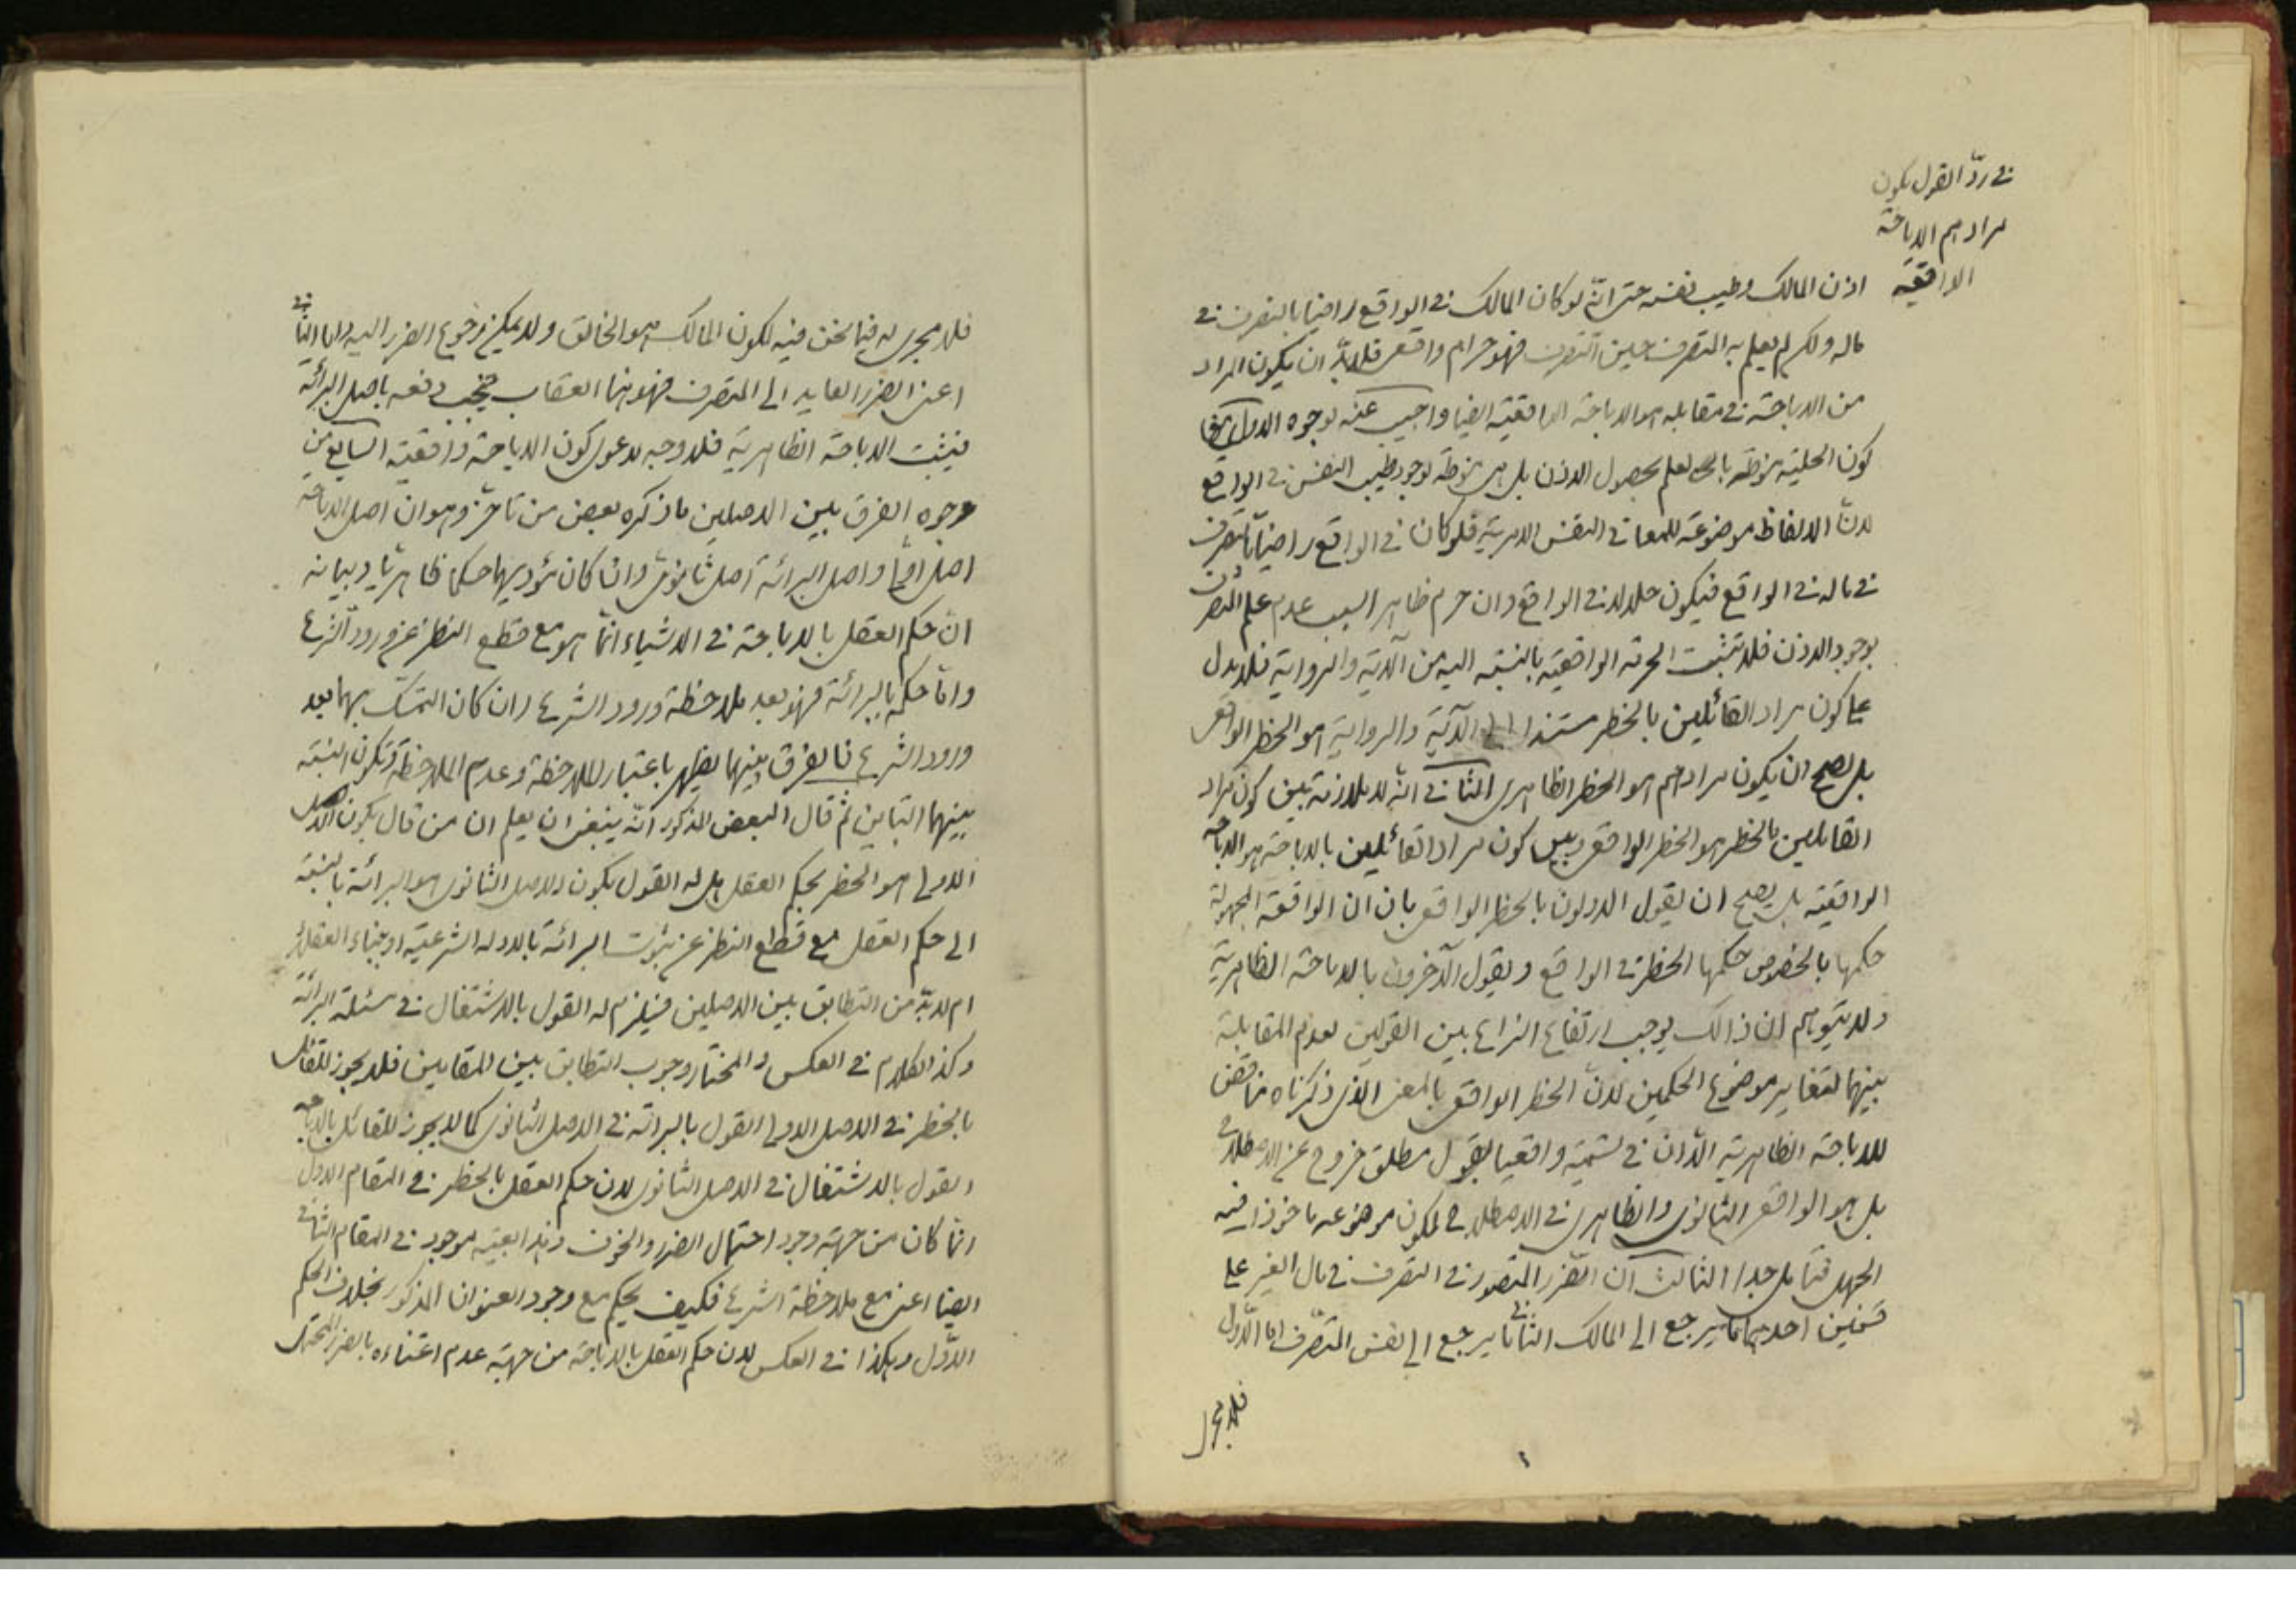 في ردّ القول بكون
مرادهم الاباحة
الواقعية
اذن المالك وطيب نفسه حتى انّه لو كان المالك في الواقع راضيا بالتصرف في
ماله ولكن لم يعلم به المتصرف حين التصرف فهو حرام واقعى فلا بدّ ان يكون المراد
من الاباحة في مقابله هو الاباحة الواقعية ايضا واجيب عنه بوجوه الاول
كون الحلية منوطة بالعلم بحصول الاذن بل هي منوطة بوجود طيب النفس في الواقع
لانّ الالفاظ موضوعة للمعاني النفس الامرية فلو كان في الواقع راضيا بالتصرف
في ماله في الواقع فيكون حلالا في الواقع وان حرم ظاهرا لسبب عدم علم المتصرف
بوجود الاذن فلا تثبت الحرمة الواقعية بالنسبة اليه من الآية والرواية فلا يدل
على كون مراد القائلين بالخطر مستندا الى الآية والرواية هو الحظر الواقعى
بل يصح ان يكون مرادهم هو الحظر الظاهرى الثاني انّه لا ملازمة بين كون مراد
القائلين بالحظر هو الحظر الواقعى وبين كون مراد القائلين بالاباحة هو الاباحة
الواقعية بل يصح ان يقول الاولون بالحظر الواقعى بان ان الواقعة المجهولة
حكمها بالخصوص حكمها الحظر في الواقع ويقول الآخرون بالاباحة الظاهرية
ولا يتوهم ان ذالك يوجب ارتفاع النزاع بين القولين لعدم المقابلة
بينهما لتغاير موضوع الحكمين لانّ الحظر الواقعى بالمعنى الذى ذكرناه مناقض
للاباحة الظاهرية الّا ان في تسميته واقعيا بقول مطلق خروج عن الاصطلاح
بل هو الواقعى الثانوى والظاهرى في الاصطلاح لكون موضوعه ماخوذا فيه
الجهل فتامل جدا الثالث ان الضرر المتصور في التصرف في مال الغير على
قسمين احدهما ما يرجع الى المالك الثاني ما يرجع الى نفس المتصرّف اما الاوّل
فلا مجرى
فلا مجرى له فيما نحن فيه لكون المالك هو الخالق ولا يمكن رجوع الضرر اليه واما الثاني
اعنى الضرر العايد الى المتصرف فهو هنا العقاب فيجب دفعه باصل البرائة
فيثبت الاباحة الظاهرية فلا وجه لدعوى كون الاباحة واقعية السابع من
وجوه الفرق بين الاصلين ما ذكره بعض من تاخر وهو ان اصل الاباحة
اصل اولى واصل البرائة اصل ثانوى وان كان مؤديهما حكما ظاهريا وبيانه
انّ حكم العقل بالاباحة في الاشياء انّما هو مع قطع النظر عن ورود الشرع
وامّا حكمه بالبرائة فهو بعد ملاحظة ورود الشرع وان كان التمسّك بهما بعد
ورود الشرع فالفرق بينهما يظهر باعتبار الملاحظة وعدم الملاحظة وتكون النسبة
بينهما التباين ثم قال البعض المذكور انّه ينبغى ان يعلم ان من قال بكون الاصل
الاولى هو الحظر بحكم العقل هل له القول بكون الاصل الثانوى هو البرائة بالنسبة
الى حكم العقل مع قطع النظر عن ثبوت البرائة بالادلة الشرعية او بناء العقلاء
ام لا بدّ من التطابق بين الاصلين فيلزم له القول بالاشتغال في مسئلة البرائة
وكذا الكلام في العكس والمختار وجوب التطابق بين المقامين فلا يجوز للقائل
بالحظر في الاصل الاولى القول بالبرائة في الاصل الثانوى كما لا يجوز للقائل بالاباحة
القول بالاشتغال في الاصل الثانوى لان حكم العقل بالحظر في المقام الاول
انّما كان من جهة وجود احتمال الضرر والخوف وهذا بعينه موجود في المقام الثاني
ايضا اعنى مع ملاحظة الشرع فكيف يحكم مع وجود العنوان المذكور بخلاف الحكم
الاوّل وهكذا في العكس لان حكم العقل بالاباحة من جهة عدم اعتناءه بالضرر المحتمل